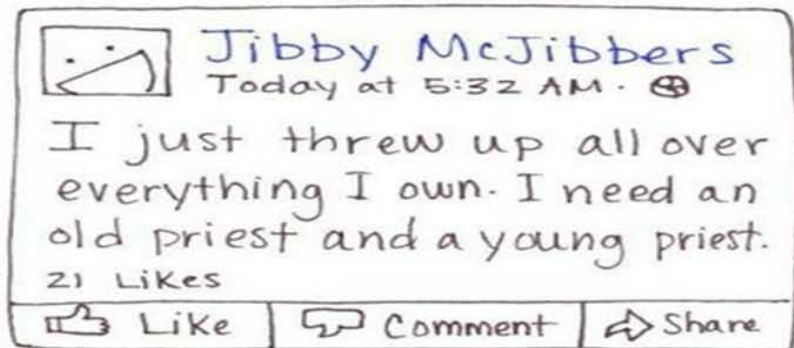 Jibby McJibbers
Today at 5:32 AM.
I just threw up all over
everything I own. I need an
old priest and a young priest.
21 Likes
Like
Comment
Share